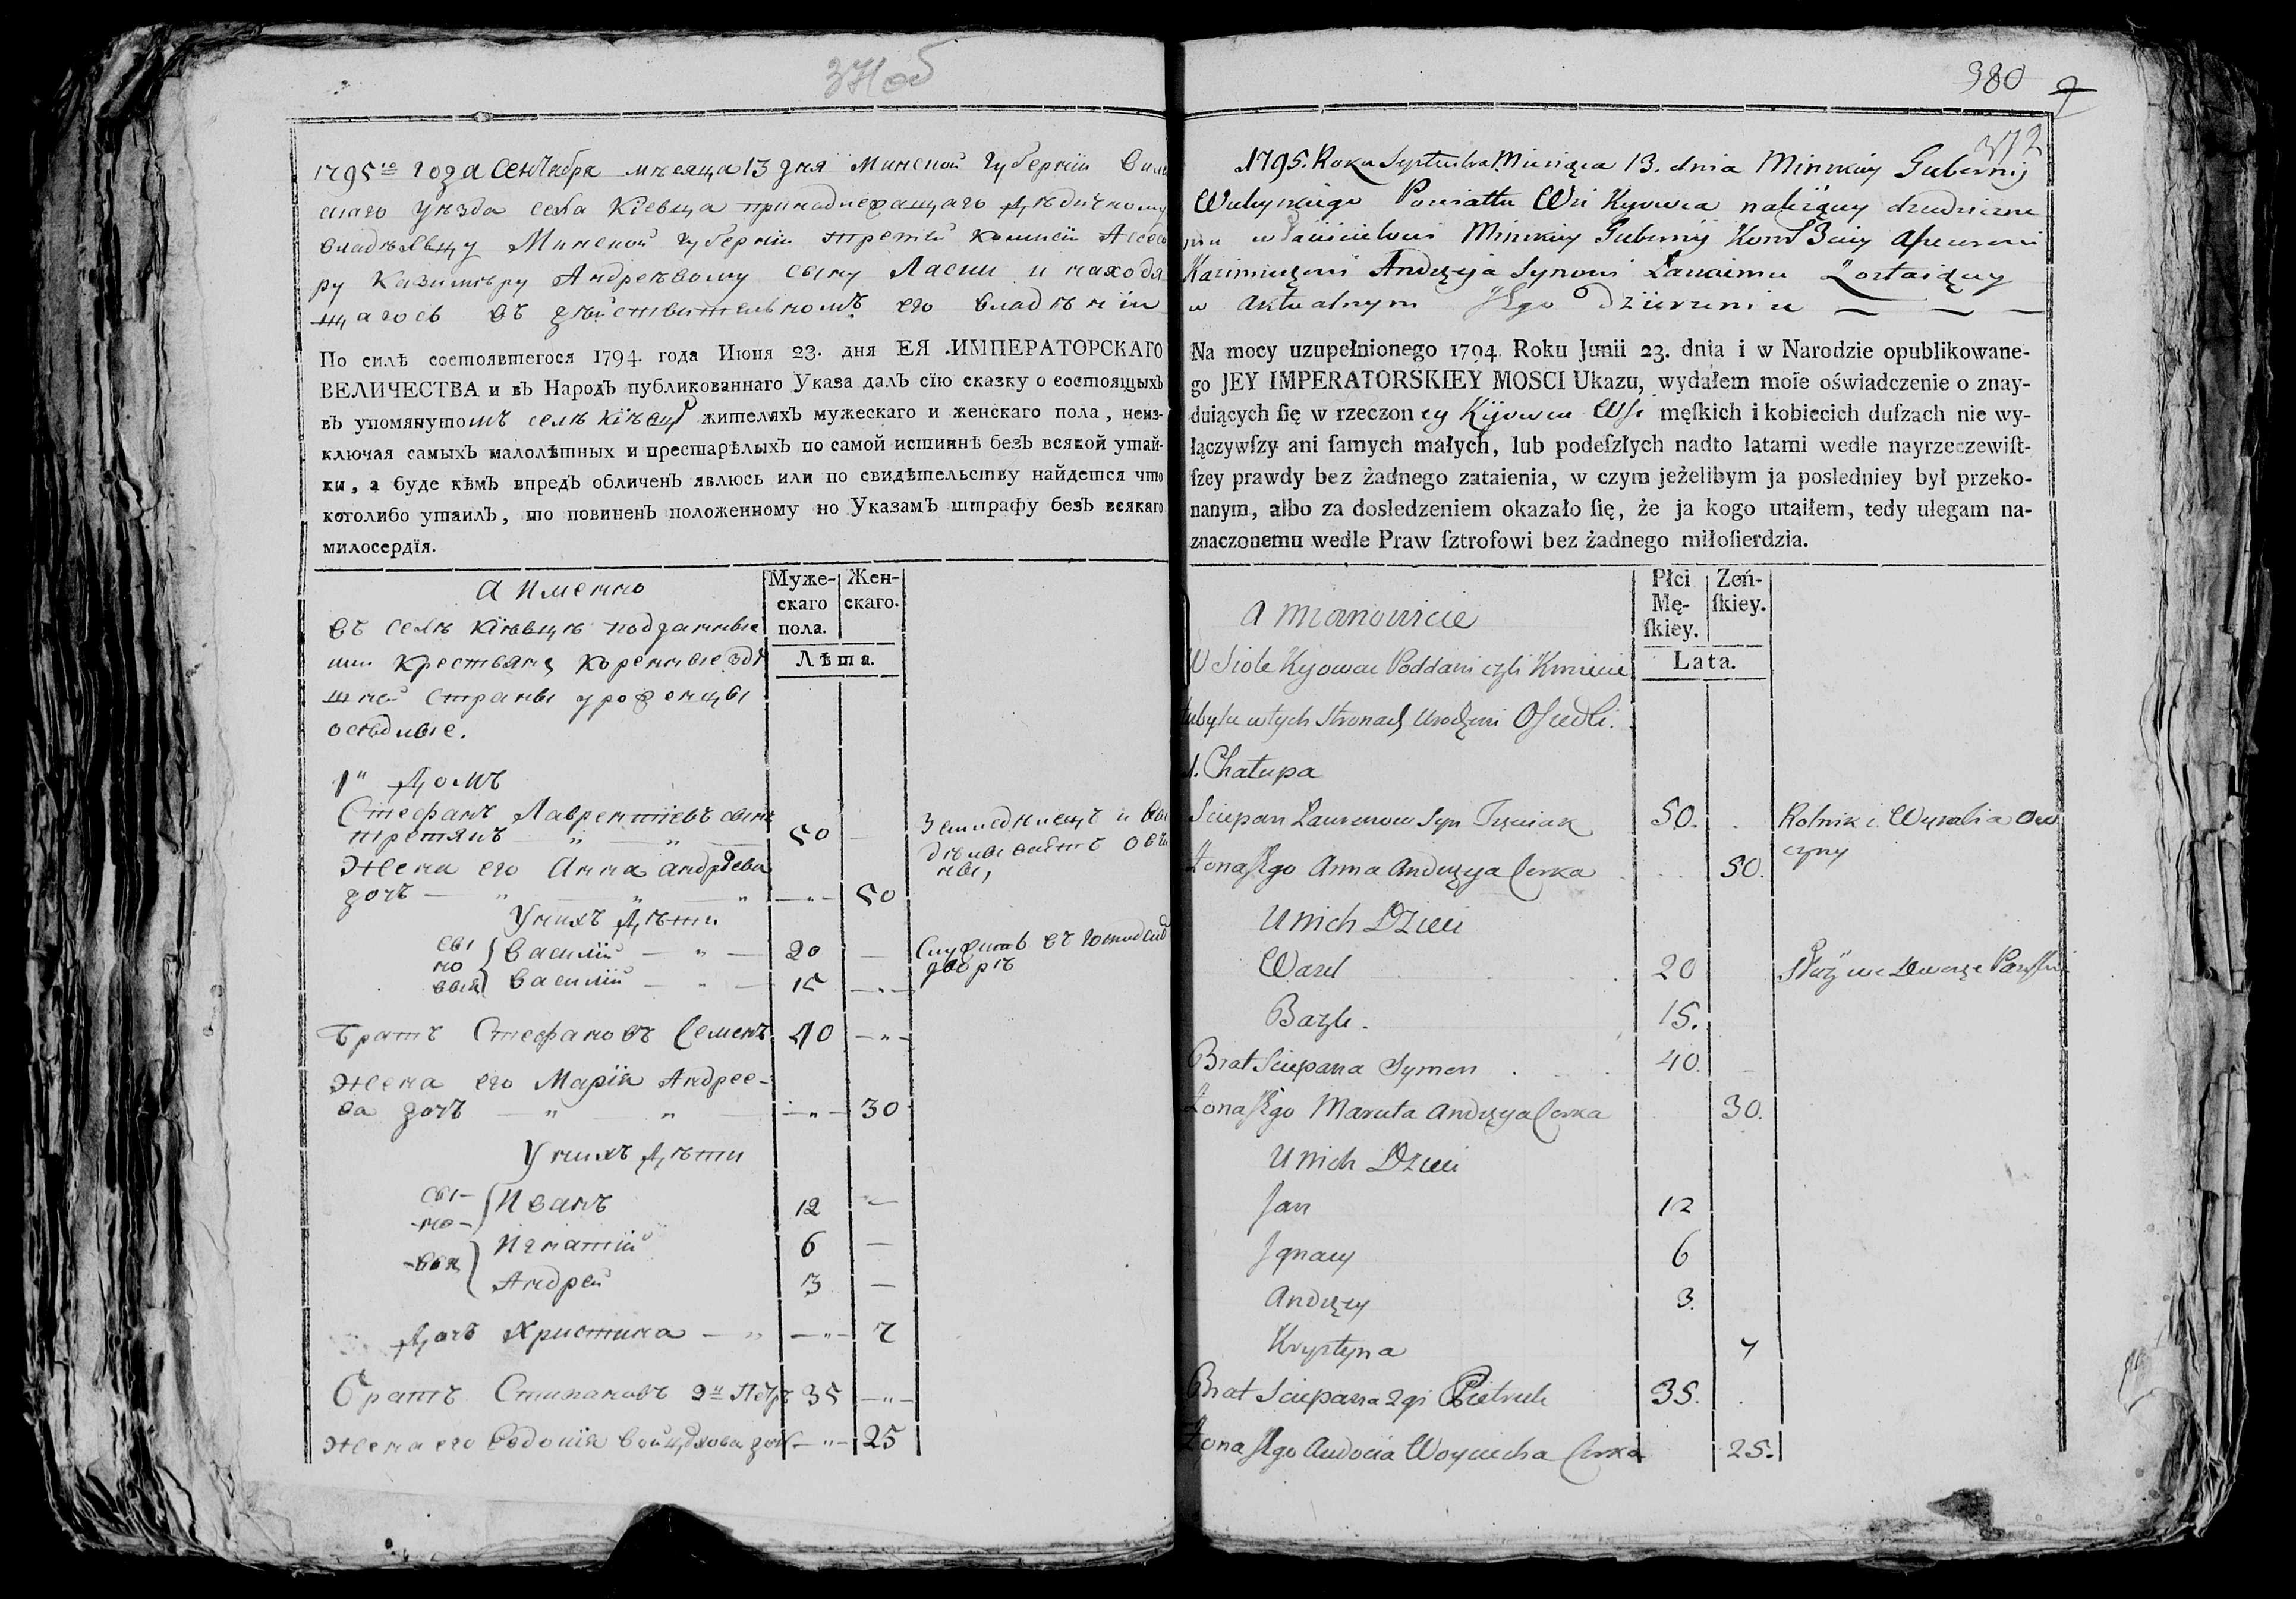 371 об
1795го года Сентября месяца 13 дня Минской Губернии Вилей
скаго Уезда села Кіевца принадлежащаго Дедичному
владельцу Минской губерніи третей комисіи Асесо
ру Казимеру Андреевому сыну Ласки и находя
щагось въ действительномъ его владеніи
По силѣ состоявшегося 1794. года Июня 23. дня ЕЯ ИМПЕРАТОРСКАГО
ВЕЛИЧЕСТВА и въ Народъ публикованнаго Указа далъ сїю сказку о состоящыхъ
въ упомянутомъ селѣ Кіевцѣ жителяхъ мужескаго и женскаго пола, неиз-
ключая самыхъ малолѣтных и престарѣлыхъ по самой истиннѣ безъ всякой утай-
ки, а буде кѣмъ впредъ обличенъ явлюсь или по свидѣтельству найдется что
коголибо утаилъ, то повиненъ положенному по Указамъ штрафу безъ всякаго
милосердїя.
а именно
Муже-
скаго
пола.
Жен-
скаго.
Лѣта.
въ селѣ Кіевцѣ подданные
или крестьяне коренные здѣ
шней страны уроженцы
оседлые.
1й Домъ
Стефанъ Лаврентіевъ сынъ
третякъ 50 —
Земледелецъ и вы
делываетъ овчи
ны,
Жена его Анна Андреева
дочь — 50
У нихъ Дѣти
сы
но
вья
Василій 20 —
Служитъ въ господск
дворѣ
Василій 15 —
Братъ Стефановъ Семенъ 40 —
Жена его Марія Андрее-
ва дочь — 30
У нихъ Дѣти
сы-
-но-
-вья
Иванъ 12 —
Игнатій 6 —
Андрей 3 —
Дочь Христина — 7
Братъ Стипановъ 2й Петръ 35 —
Жена его Евдокія Войцѣхова дочь — 25
380
372
1795. Roku Septembra Miesiąca 13. dnia Minskiey Gubernij
Powiattu Wsi Kijowca należącey dziedziczne
mu właścicielowi Minskiey Gubernij
Kazimierzowi Andrzeja Synowi Łaskiemu Zostaiącey
w aktualnym Jego Dzierzeniu
Na mocy uzupełnionego 1794. Roku Junii 23. dnia i w Narodzie opublikowane-
go JEY IMPERATORSKIEY MOSCI Ukazu, wydałem moïe oświadczenie o znay-
duiących ſię w rzeczoney Kijowcu Wsi męſkich i kobiecich duſzach nie wy-
łączywſzy ani ſamych małych, lub podeſzłych nadto latami wedle nayrzeczewiſt-
ſzey prawdy bez żadnego zataienia, w czym jeżelibym ja posledniey był przeko-
nanym, albo za dosledzeniem okazało ſię, że ja kogo utaiłem, tedy ulegam na-
znaczonemu wedle Praw ſztrofowi bez żadnego miłoſierdzia.
a mianowicie
Płci
Mę-
ſkiey.
Zeń-
ſkiey.
Lata.
W Siole Kijowcu Poddani czyli Kmiecie
tubylce w tych stronach Urodzeni Osiedli.
1. Chałupa
Sciepan Laurenow Syn Trzeciak 50.
Rolnik i Wyrabia Ow
czyny
Żona Jego Anna Andrzeya Corka 50.
U nich Dzieci
Wasil 20
Służy we Dworze Pańskim
Bazyli. 15.
Brat Sciepana Symon 40.
Żona Jego Maruta Andrzeya Corka 30.
U nich Dzieci
Jan 12
Jgnacy 6
Andrzey 3.
Krystyna 7
Brat Sciepana 2gi Pietruk 35.
Żona Jego Audocia Woyciecha Corka 25.